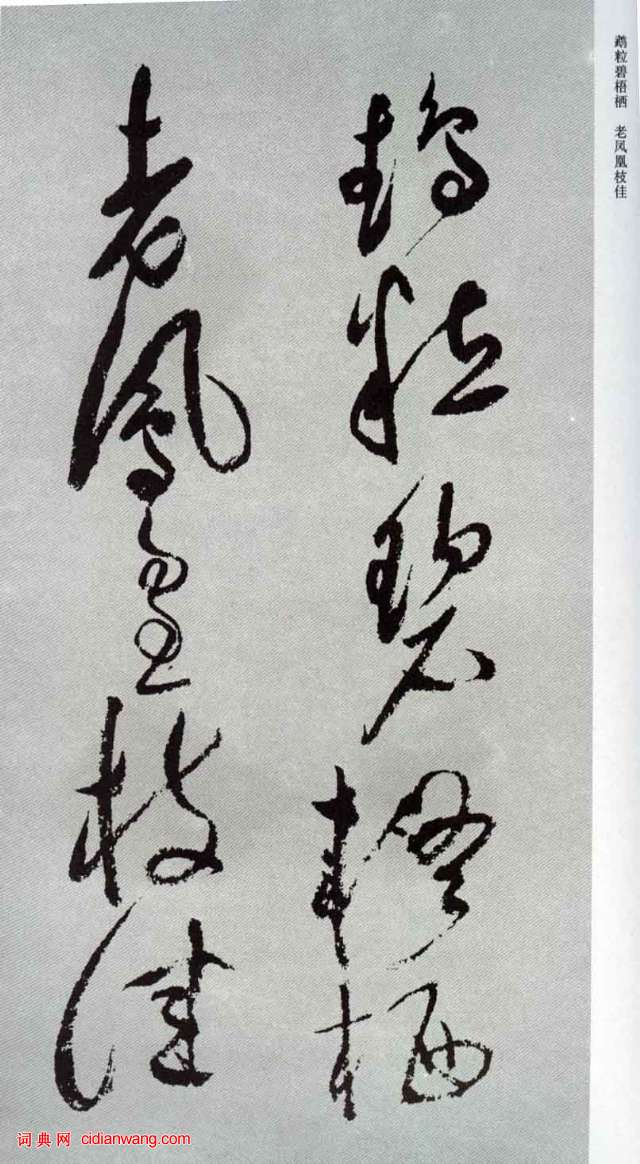 鹉粒碧梧栖 老凤凰枝佳
鵡粒碧梧栖
老鳳凰枝佳
词典网 cidianwang.com